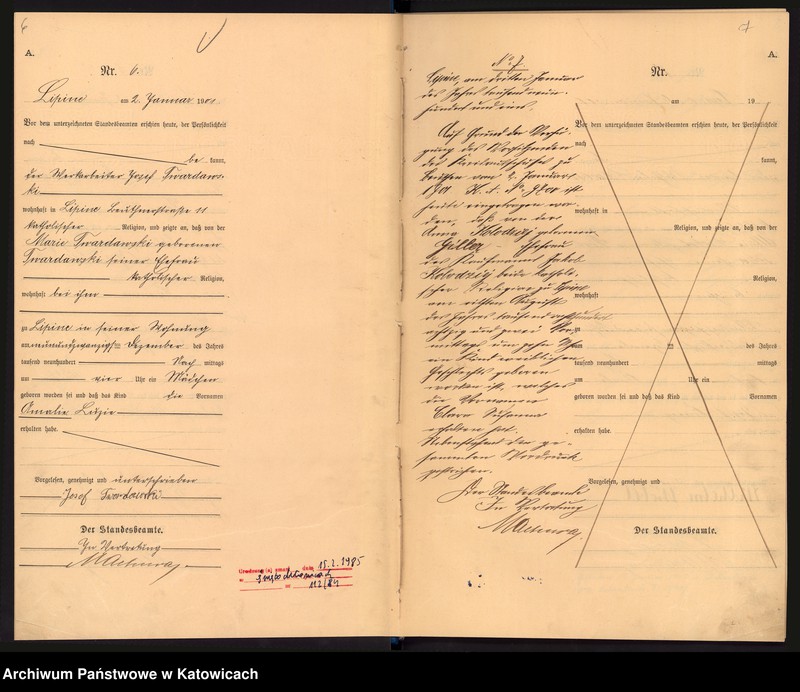 6
A.
Nr. 6.
Lipine am 2. Januar 1901
Vor dem unterzeichneten Standesbeamten erschien heute, der Persönlichkeit
nach
be kannt,
der Werkarbeiter Josef Twardaws-
ki
wohnhaft in Lipine Beuthnerstrasse 11
katholischer Religion, und zeigte an, daß von der
Marie Twardawski geborenen
Twardawski seiner Ehefrau
katholischer Religion,
wohnhaft bei ihm
zu Lipine in seiner Wohnung
am neunundzwanzigsten Dezember des Jahres
tausend neunhundert Nach mittags
um vier Uhr ein Mädchen
geboren worden sei und daß das Kind die Vornamen
Amalie Luzie
erhalten habe.
Vorgelesen, genehmigt und unterschrieben
Josef Twardawski
Der Standesbeamte.
In Vertretung
dnia 15.2.1985
nr 112/84
7
A.
No. 7.
Lipine, am dritten Januar
des Jahres tausend neun-
hundert und eins.
Auf Grund der Verfü-
gung des Vorsitzenden
des Kreisausschusses zu
Beuthen vom 2. Januar
1901 ist
heute eingetragen wor-
den, daß von der
Anna Kolodziej geborenen
Giller Ehefrau
des Jakob
Kolodziej beide katholi-
scher Religion zu Lipine
am August
des Jahres tausend achthundert
achtzig und zwei Vor-
mittags um zehn Uhr
ein Kind weiblichen
Geschlechts geboren
worden ist, welches
die Vornamen
Clara Susanna
erhalten hat.
Nebenstehend der ge-
sammten Vordruck
gestrichen.
Der Standesbeamte
In Vertretung
Nr.
am 19
Vor dem unterzeichneten Standesbeamten erschien heute, der Persönlichkeit
nach
kannt,
wohnhaft in
Religion, und zeigte an, daß von der
Religion,
wohnhaft
zu
am ten des Jahres
tausend neunhundert mittags
um Uhr ein
geboren worden sei und daß das Kind Vornamen
erhalten habe.
Vorgelesen, genehmigt und
Der Standesbeamte.
Archiwum Państwowe w Katowicach